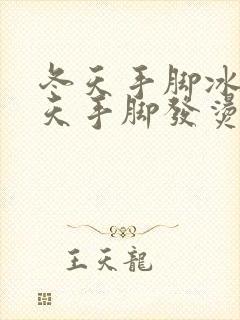 冬天手脚冰
天手脚發燙
王天龍